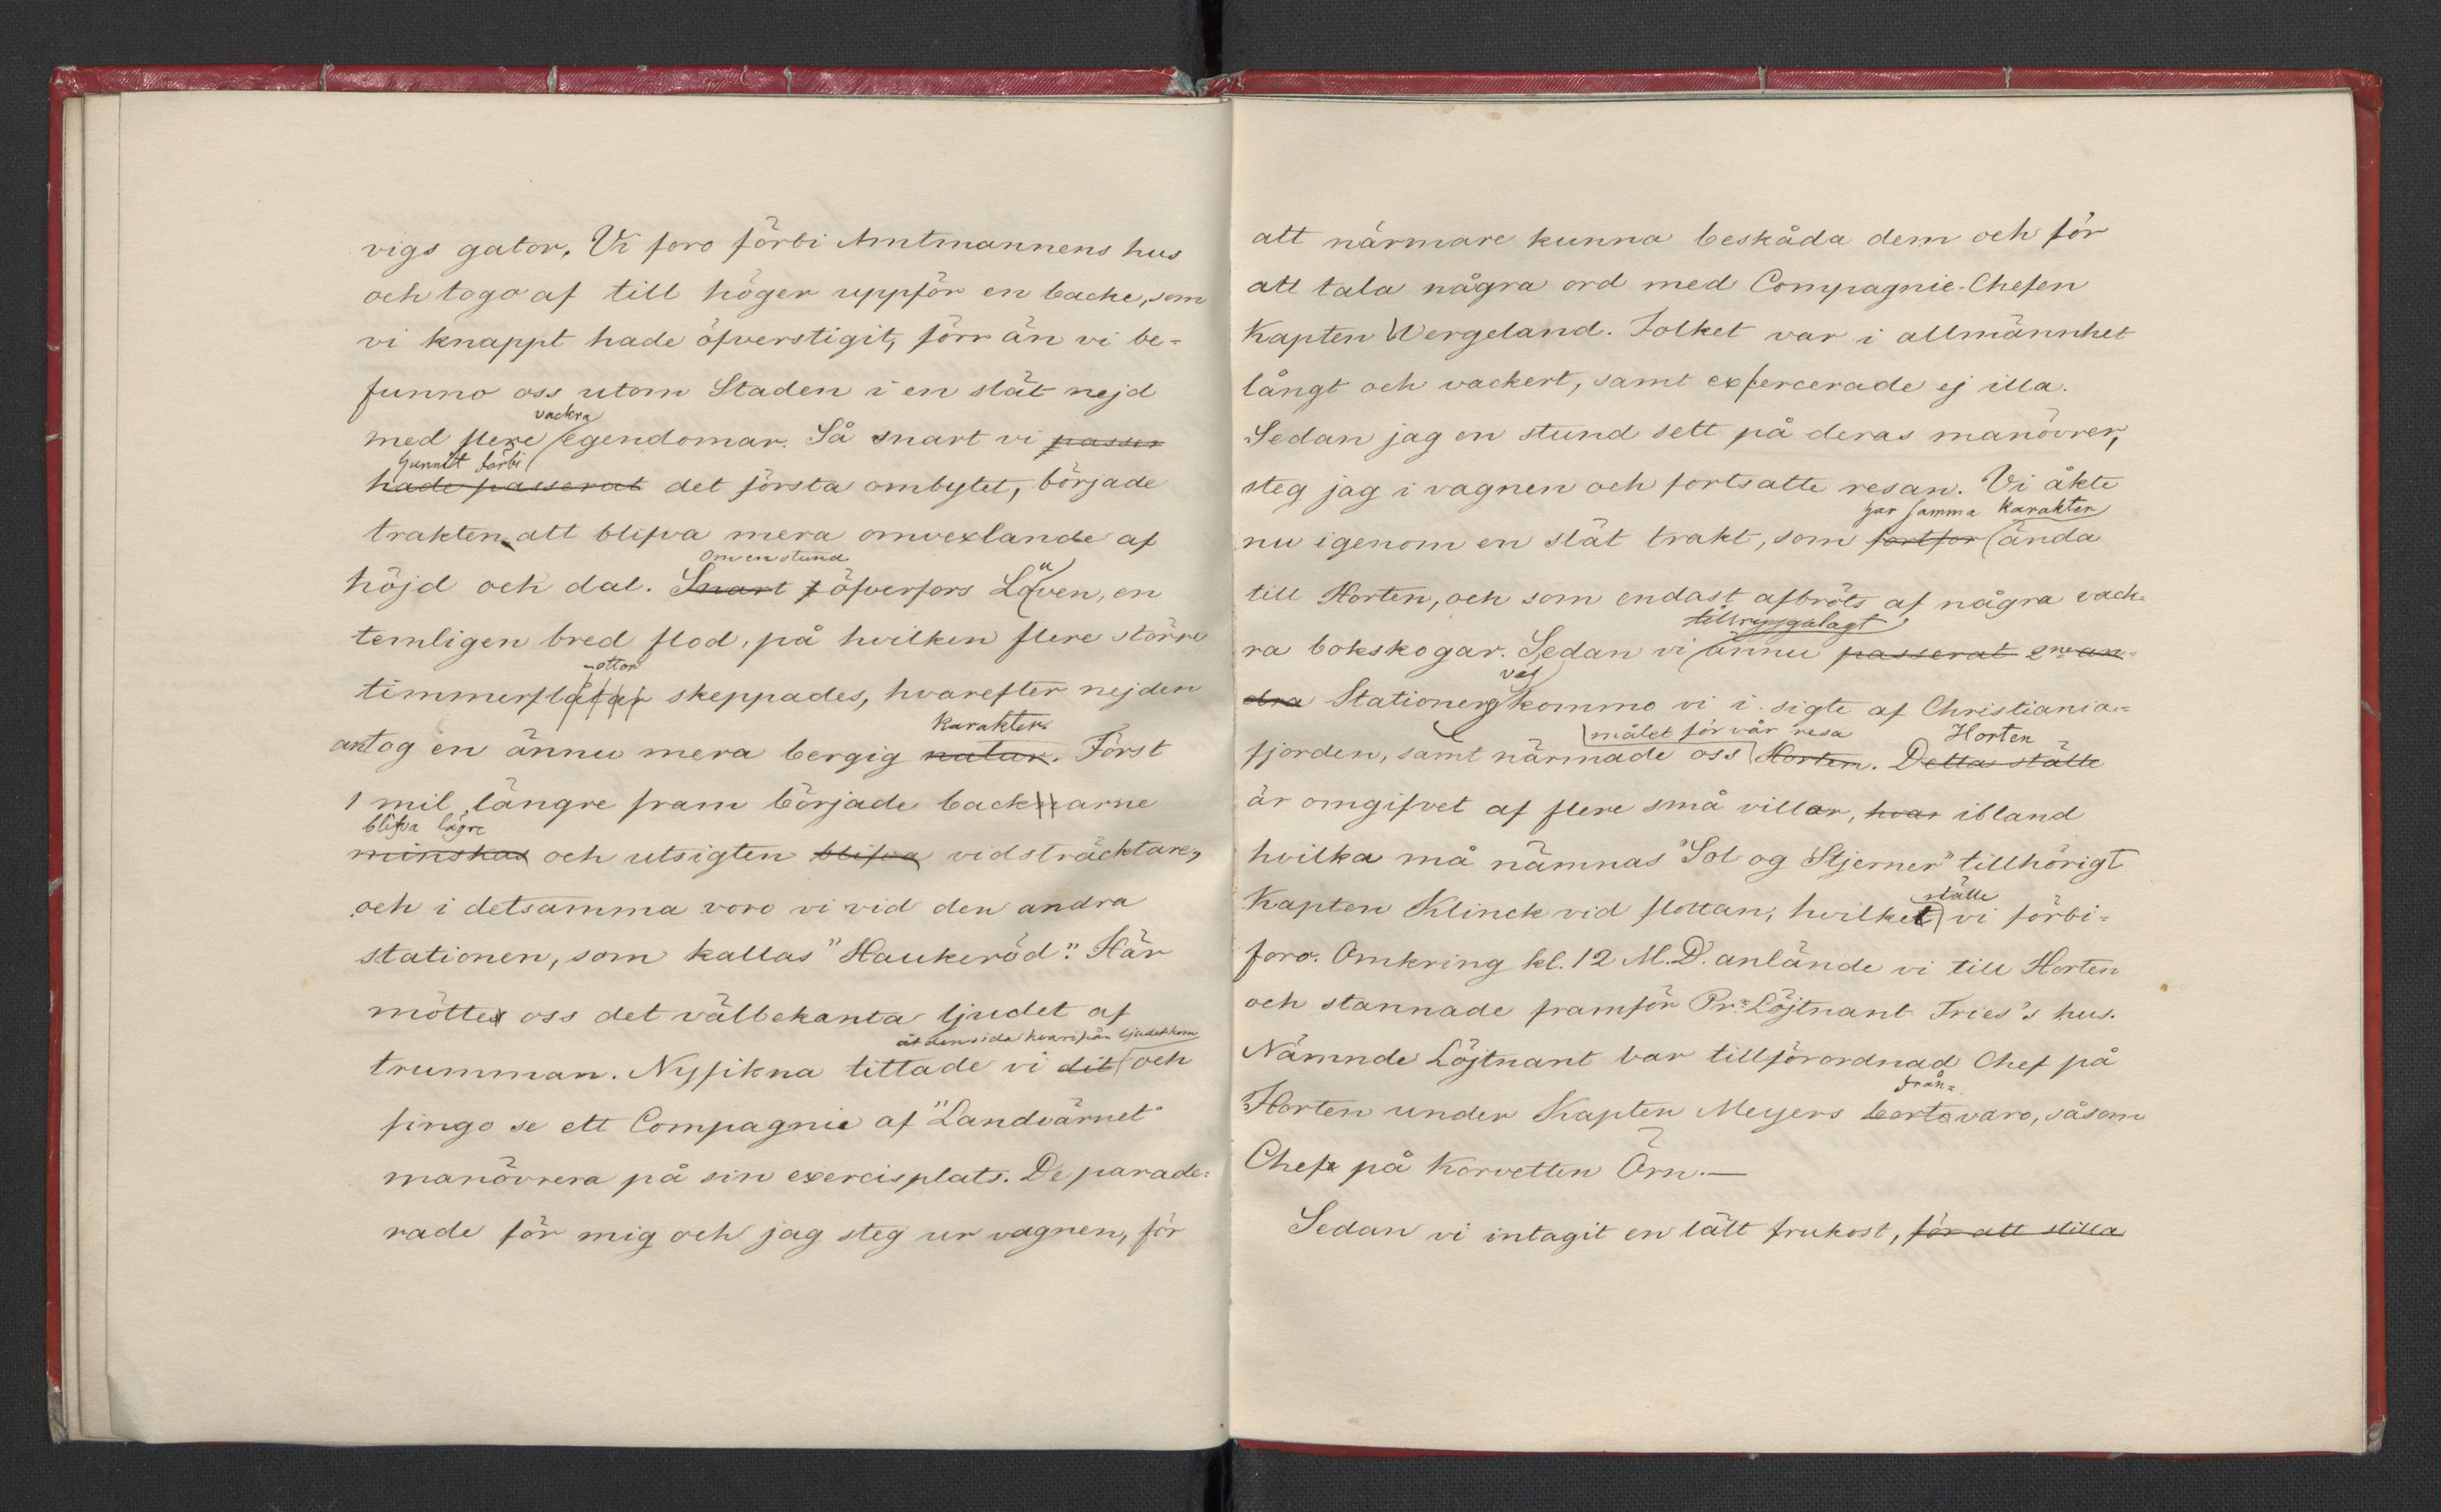 vigs gator. Vi foro förbi Amtmannens hus
och togo af till höger uppför en backe, som
vi knappt hade öfverstigit, förr än vi be-
funno oss utom Staden i en slät nejd
vackra
med flere egendomar. Så snart vi passer
hunnit förbi
hade passerat det första ombytet, började
trakten att blifva mera omvexlande af
Om en stund
höjd och dal. Snart öfverfors Löuven, en
temligen bred flod, på hvilken flere större
-ottor
timmerflåtar skeppades, hvarefter nejden
karakter
antog en ännu mera bergig natur. Först
1 mil längre fram började backarne
blifva lägre
minskas och utsigten blifva vidsträcktare,
och i detsamma voro vi vid den andra
stationen, som kallas "Haukeröd". Här
möttes oss det välbekanta ljudet af
åt den sida hvarifrån ljudet kom
trumman. Nyfikna tittade vi dit och
fingo se ett Compagnie af "Landvärnet"
manövrera på sin exercisplats. De parade-
rade för mig och jag steg ur vagnen, för
att närmare kunna beskåda dem och för
att tala några ord med Compagnie-Chefen
Kapten Wergeland. Folket var i allmännhet
långt och vackert, samt exercerade ej illa.
Sedan jag en stund sett på deras manövrer,
steg jag i vagnen och fortsatte resan. Vi åkte
har samma karakter
nu igenom en slät trakt, som fortfor ända
till Horten, och som endast afbröts af några vack-
tillryggalagt
ra bokskogar. Sedan vi ännu passerat 2ne an-
väg
dra Stationers kommo vi i sigte af Christiania-
målet för vår resa Horten
fjorden, samt närmade oss Horten. Detta ställe
är omgifvet af flere små villor, hvar ibland
hvilka må nämnas "Sol og Stjerner" tillhörigt
ställe
Kapten Klinck vid flottan, hvilket vi förbi-
foro. Omkring kl. 12 M.D. anlände vi till Horten
och stannade framför Pr. Löjtnant Fries's hus.
Nämnde Löjtnant var tillförordnad Chef på
från-
Horten under Kapten Meyers bortavaro, såsom
Chef på Korvetten Örn.—
Sedan vi intagit en lätt frukost, för att stilla